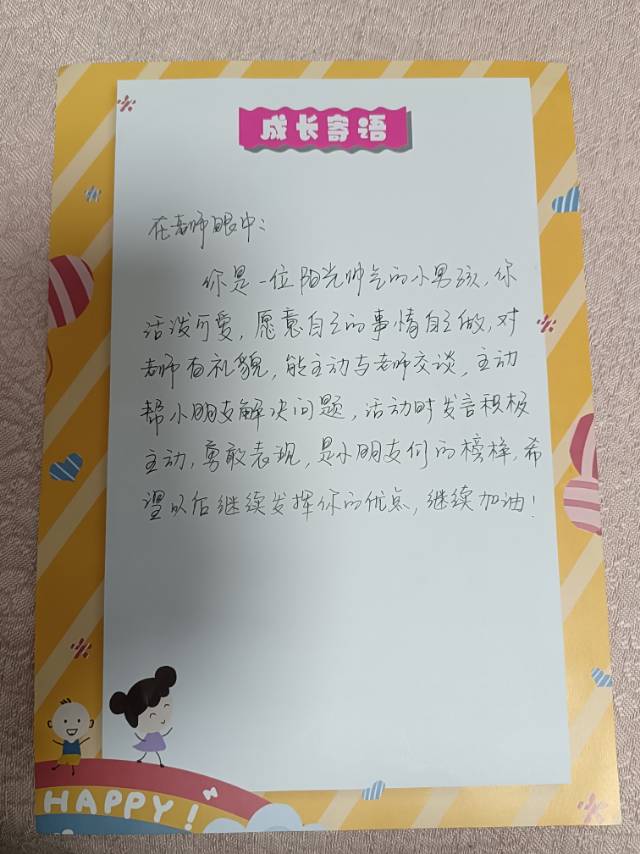 成长寄语
在老师眼中：
你是一位阳光帅气的小男孩，你
活泼可爱，愿意自己的事情自己做，对
老师有礼貌，能主动与老师交谈，主动
帮小朋友解决问题，活动时发言积极
主动，勇敢表现，是小朋友们的榜样，希
望以后继续发挥你的优点，继续加油！
HAPPY!